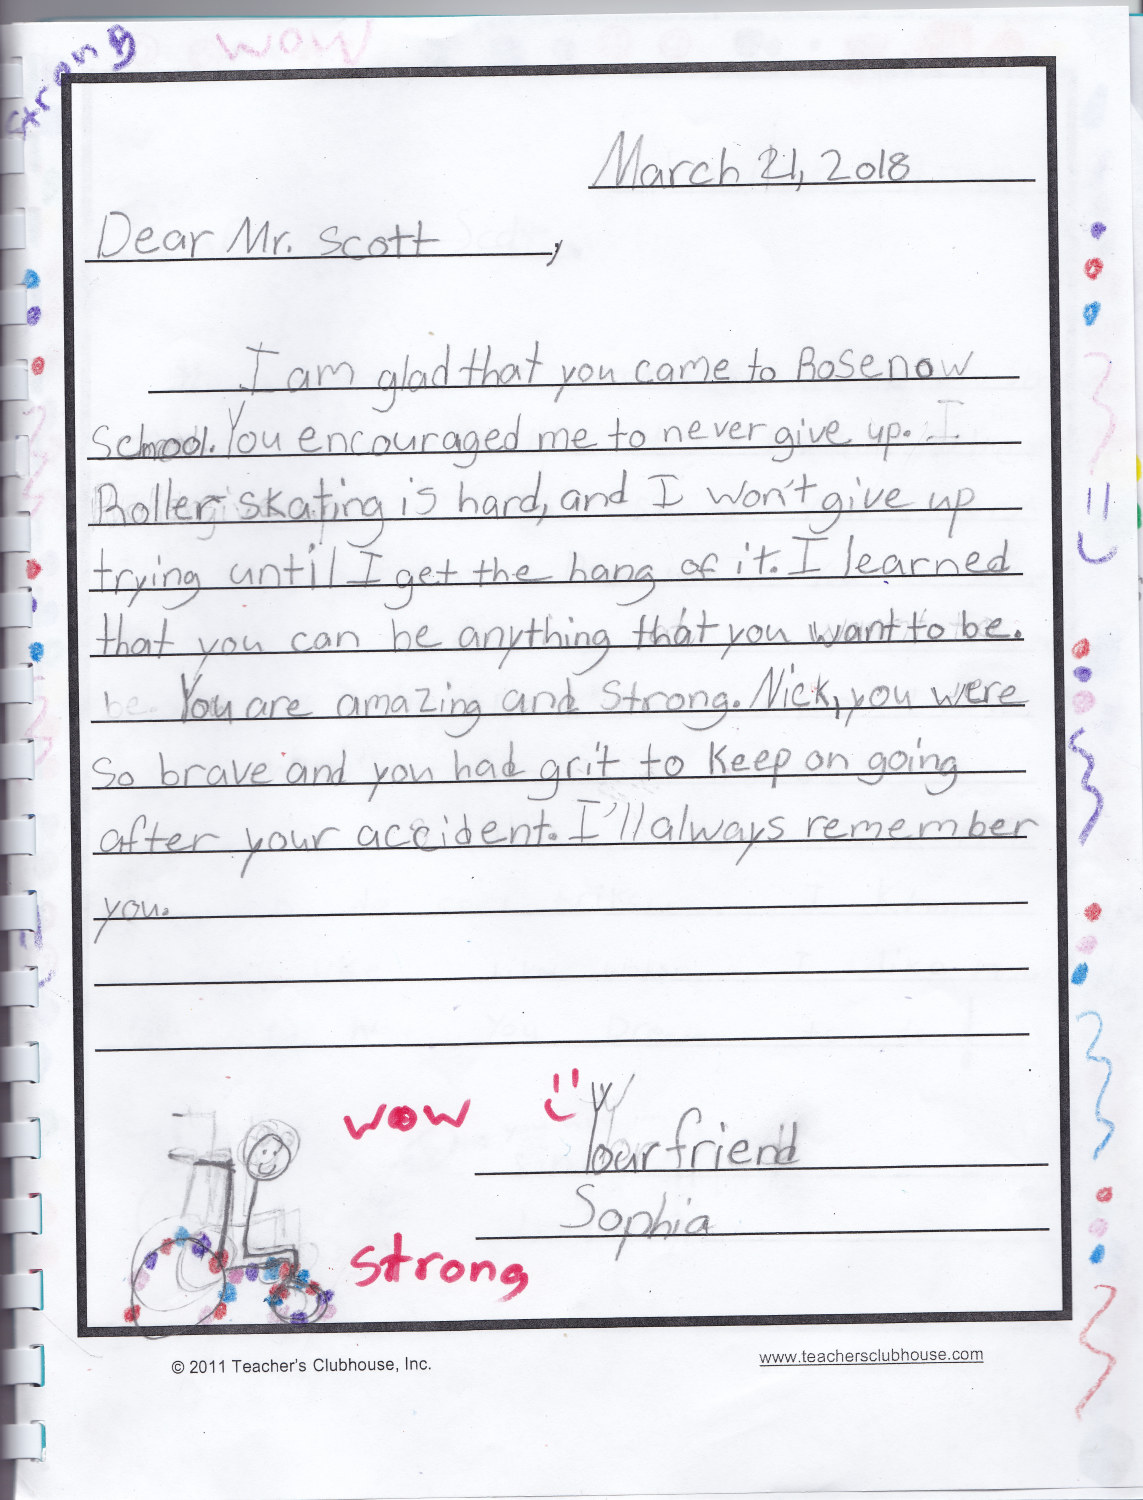 strong
wow
March 21, 2018
Dear Mr. Scott,
I am glad that you came to Rosenow
School. You encouraged me to never give up. I
Roller skating is hard, and I won't give up
trying until I get the hang of it. I learned
that you can be anything that you want to be.
be. You are amazing and strong. Nick, you were
so brave and you had grit to keep on going
after your accident. I'll always remember
you.
wow
Your friend
Sophia
strong
© 2011 Teacher's Clubhouse, Inc.
www.teachersclubhouse.com